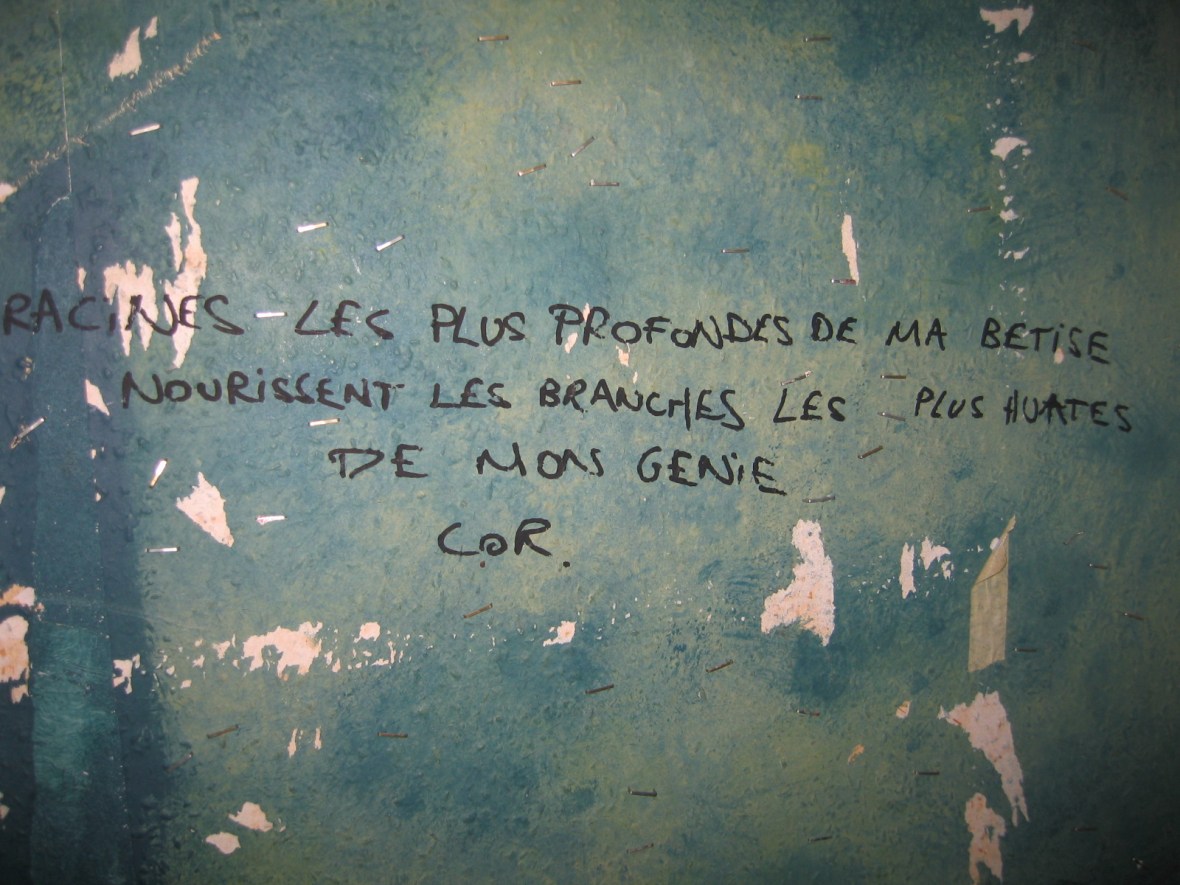 RACINES LES PLUS PROFONDES DE MA BETISE
NOURISSENT LES BRANCHES LES PLUS HUATES
DE MON GENIE
C.O.R.